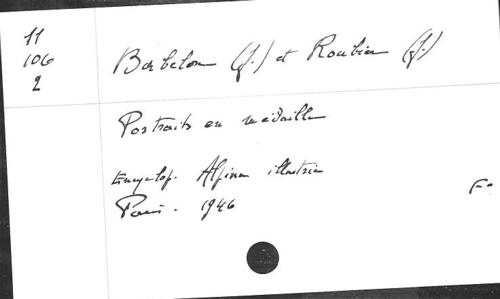 11
106
2
Babelon (J.) et Roubier (J.)
Portraits en médaille
Encyclop. Alpina illustrée
Paris. 1946
F°